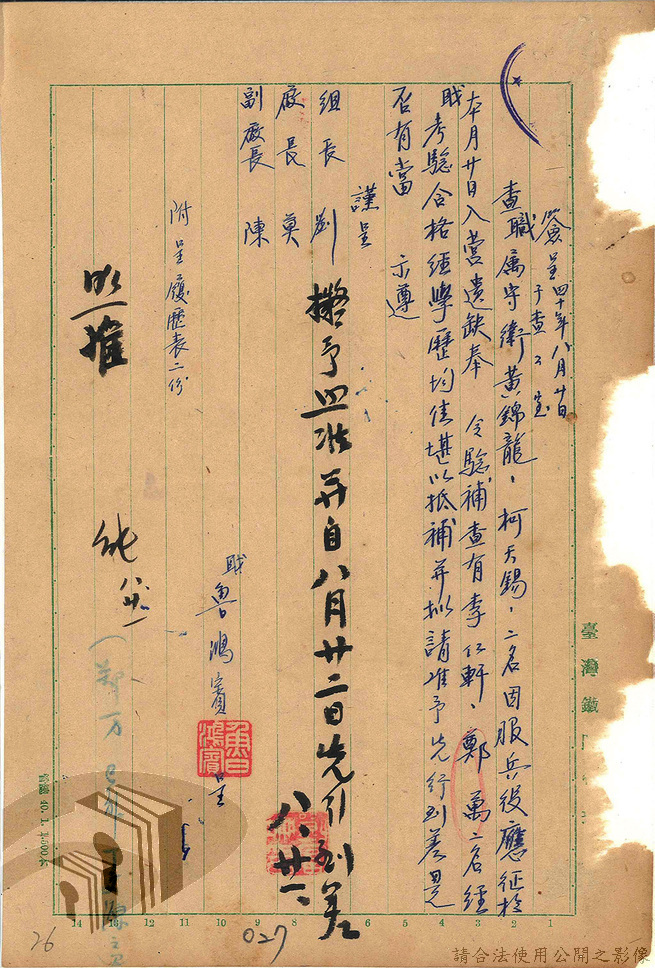 簽呈 四十年八月廿日
于查工室
查職屬守衛黃錦龍、柯天錫、二名因服兵役應征於
本月廿日入營遺缺奉 令驗補查有李仁軒、鄭萬二名經
職考驗合格經學歷均佳堪以抵補并擬請准予先行到差是
否有當 示遵
謹呈
組長 劉
廠長 莫
副廠長 陳
附呈履歷表二份
職 魯鴻賓 呈
魯鴻賓
擬予照准并自八月廿二日先行到差
八、廿一
照准
八廿一
臺灣鐵
14 13 12 11 10 9 8 7 6 5 4 3 2 1
26
027
請合法使用公開之影像